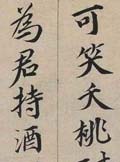 可笑夭桃
為君持酒